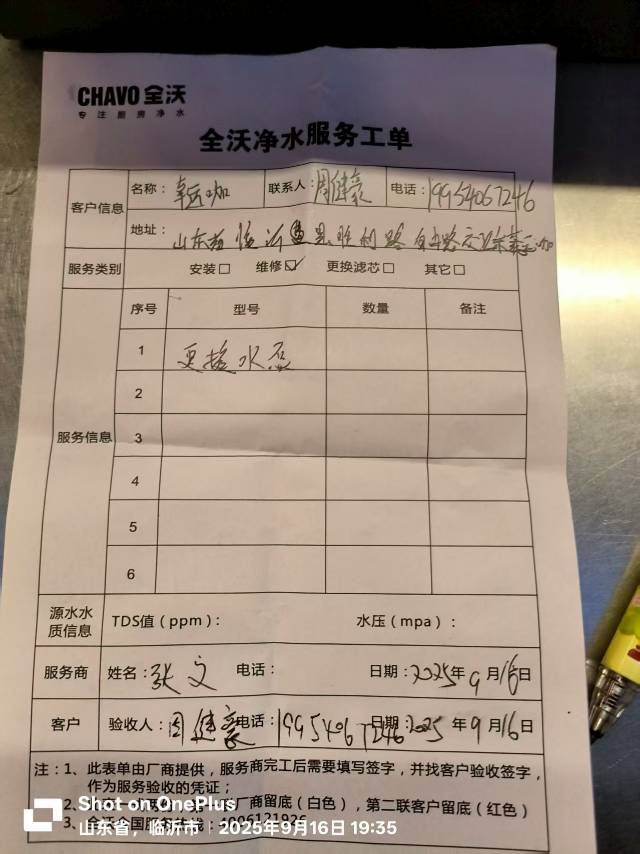 CHAVO 全沃
专注厨房净水
全沃净水服务工单
客户信息
名称：幸运咖 联系人：周健豪 电话：19954067246
地址：山东省临沂 县胜利路 路交
服务类别 安装□ 维修☑ 更换滤芯□ 其它□
服务信息
序号 型号 数量 备注
1 更换水泵
2
3
4
5
6
源水水质信息 TDS值（ppm）： 水压（mpa）：
服务商 姓名：张文 电话： 日期：2025年9月16日
客户 验收人：周健豪 电话：19954067246 日期：2025年9月16日
注：1、此表单由厂商提供，服务商完工后需要填写签字，并找客户验收签字，
作为服务验收的凭证；
2、 厂商留底（白色），第二联客户留底（红色）
3、全沃全国服务热线：4006121926
Shot on OnePlus
山东省，临沂市 2025年9月16日 19:35